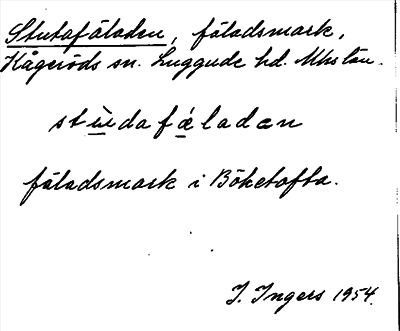 Stutafäladen, fäladsmark,
Kågeröds sn. Luggude hd. Mhs län.
stùdafǽladæn
fäladsmark i Böketofta.
I. Ingers 1954.